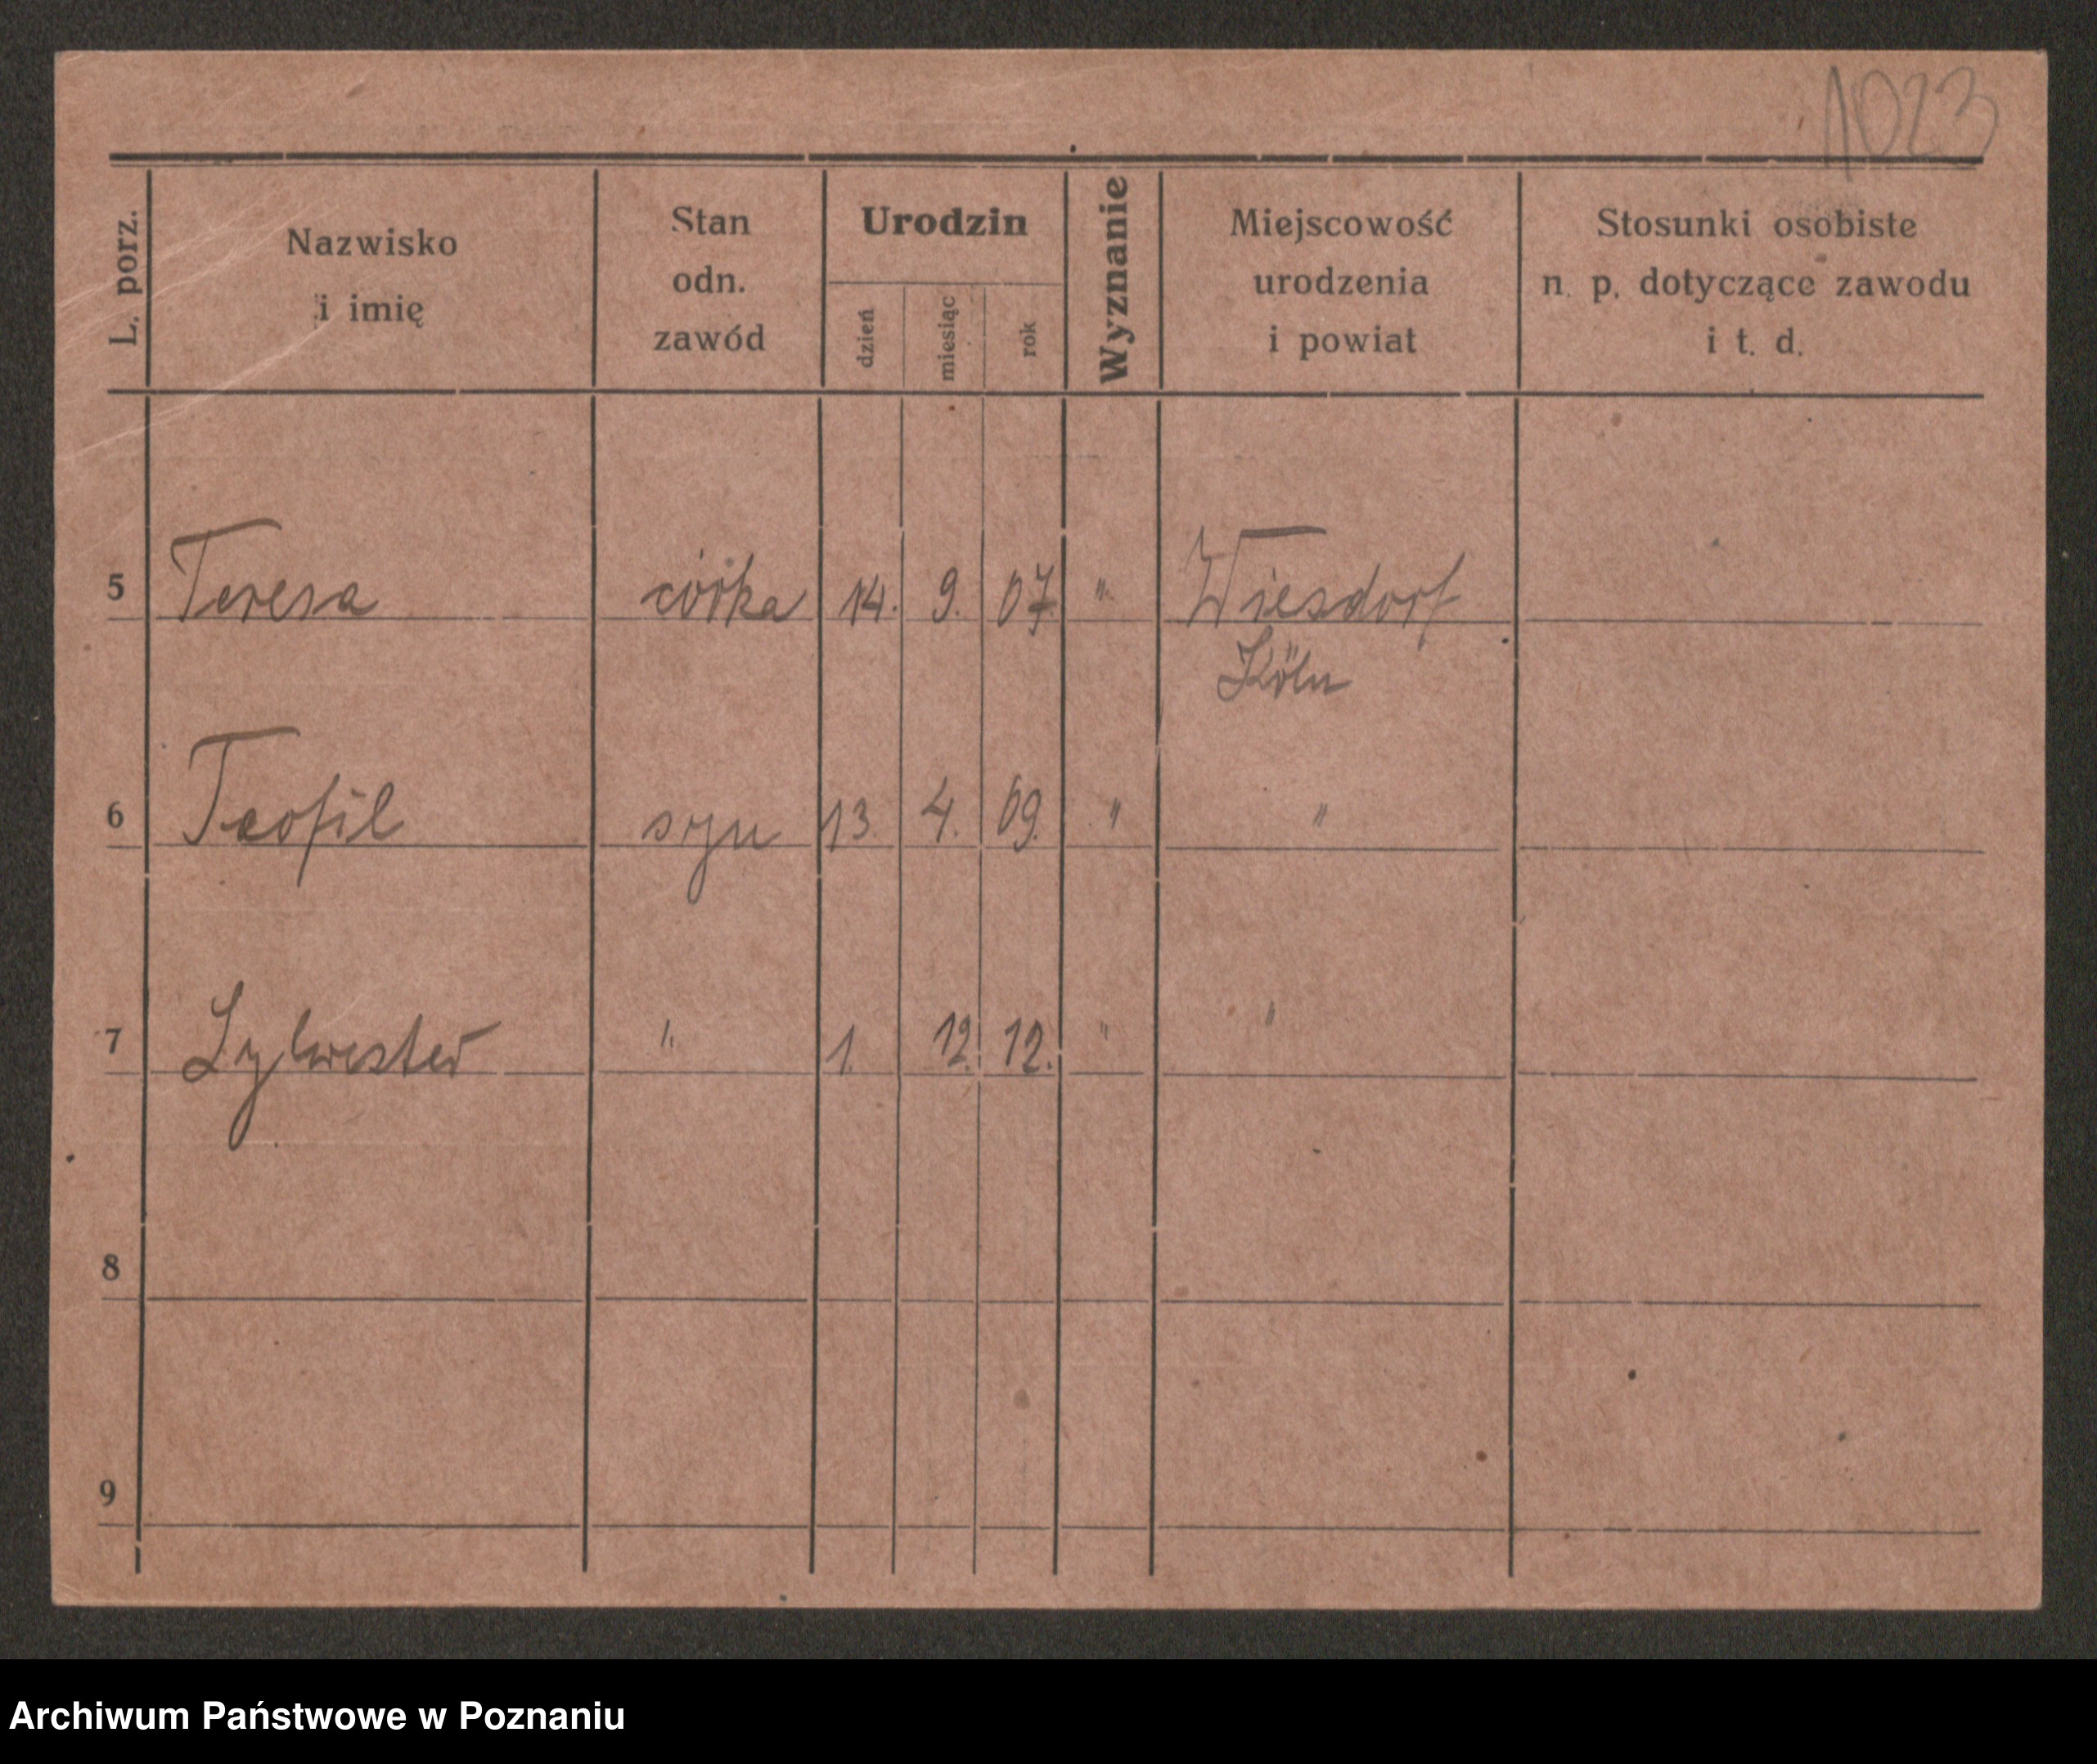 1023
L. porz. Nazwisko i imię Stan odn. zawód Urodzin dzień miesiąc rok Wyznanie Miejscowość urodzenia i powiat Stosunki osobiste n. p. dotyczące zawodu i t. d.
5 Teresa córka 14. 9. 07. " Wiesdorf
Köln
6 Teofil syn 13. 4. 09. " "
7 Sylwester " 1. 12. 12. " "
8
9
Archiwum Państwowe w Poznaniu